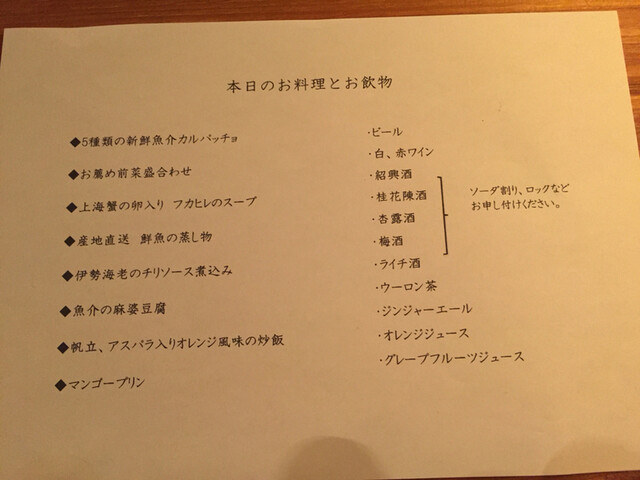 本日のお料理とお飲物
◆5種類の新鮮魚介カルパッチョ
◆お薦め前菜盛合わせ
◆上海蟹の卵入り フカヒレのスープ
◆産地直送 鮮魚の蒸し物
◆伊勢海老のチリソース煮込み
◆魚介の麻婆豆腐
◆帆立、アスパラ入りオレンジ風味の炒飯
◆マンゴープリン
・ビール
・白、赤ワイン
・紹興酒
・桂花陳酒
・杏露酒
・梅酒
・ライチ酒
・ウーロン茶
・ジンジャーエール
・オレンジジュース
・グレープフルーツジュース
ソーダ割り、ロックなど
お申し付けください。